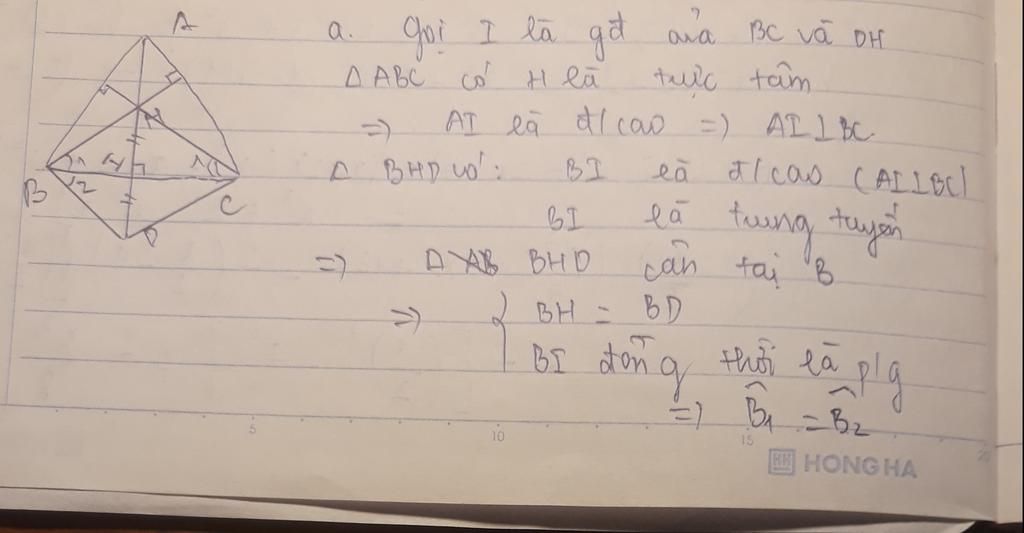 a. Gọi I là gđ của BC và DH
Δ ABC có H là trực tâm
=> AI là đ/cao => AI ⊥ BC
Δ BHD có: BI là đ/cao (AI ⊥ BC)
BI là trung tuyến
=> Δ BHD cân tại B
=> { BH = BD
BI đồng thời là p/g
=> B̂1 = B̂2
A
H
1 I 1
B 2 C
D
5 10 15 20
HONG HA